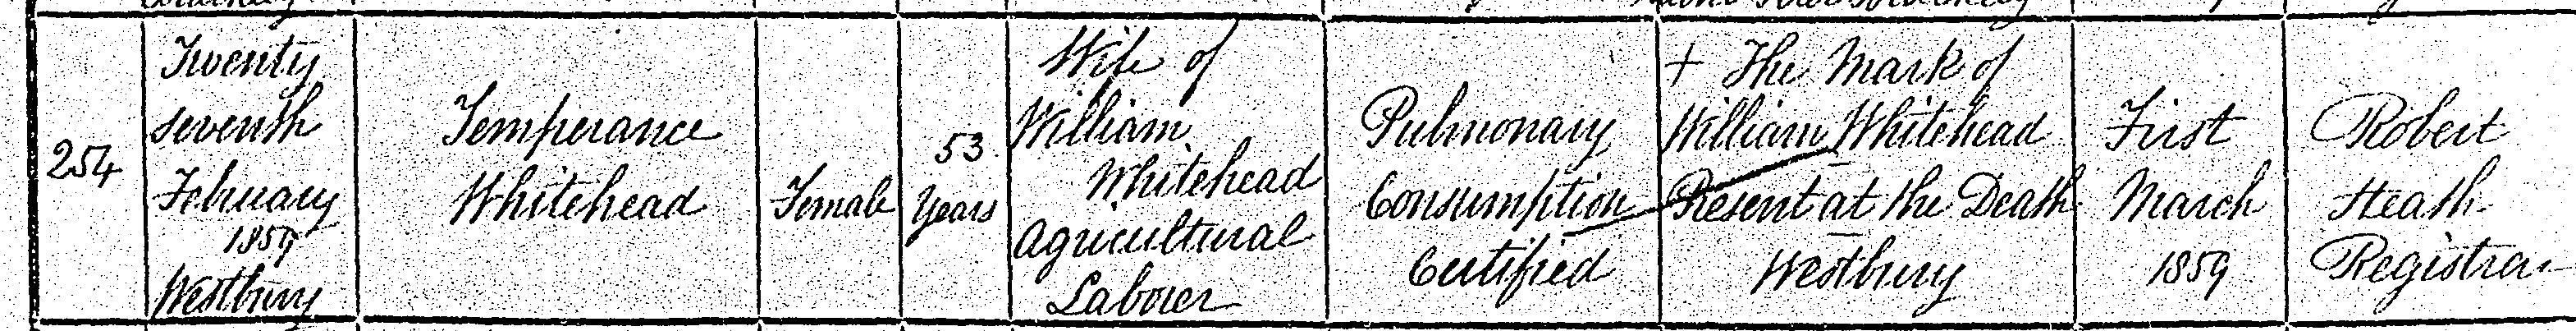 254
Twenty
seventh
February
1859
Westbury
Temperance
Whitehead
Female
53
Years
Wife of
William
Whitehead
Agricultural
Laborer
Pulmonary
Consumption
Certified
+ The Mark of
William Whitehead
Present at the Death
Westbury
First
March
1859
Robert
Heath
Registrar